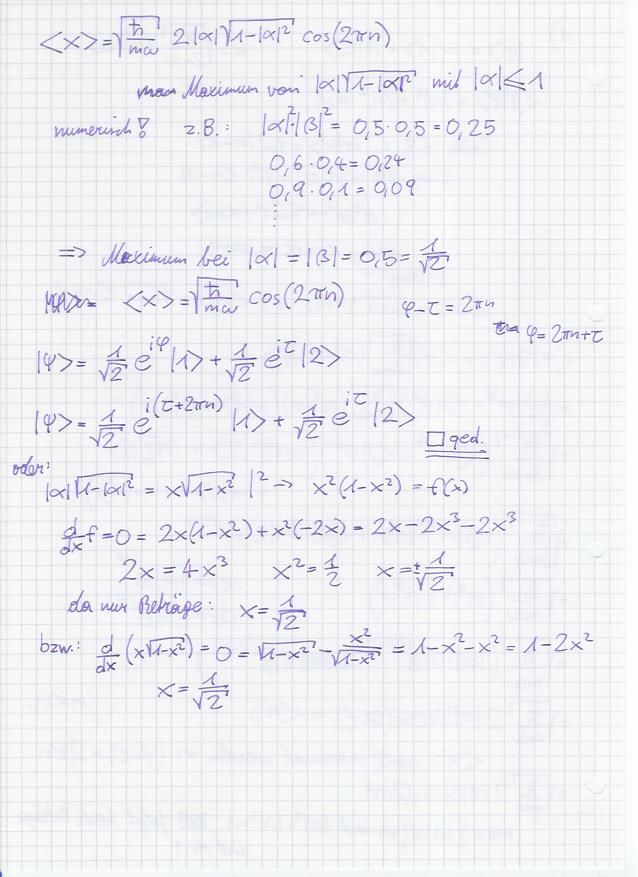 <x> = √(ħ/mω) 2|α|√(1-|α|²) cos(2πn)
Maximum von |α|√(1-|α|²) mit |α| ≤ 1
numerisch! z.B.: |α|²·|β|² = 0,5·0,5 = 0,25
0,6·0,4 = 0,24
0,9·0,1 = 0,09
⋮
=> Maximum bei |α| = |β| = 0,5 = 1/√2
<x> = √(ħ/mω) cos(2πn) φ-τ = 2πn
φ = 2πn+τ
|ψ> = 1/√2 e^{iφ} |1> + 1/√2 e^{iτ} |2>
|ψ> = 1/√2 e^{i(τ+2πn)} |1> + 1/√2 e^{iτ} |2> □ qed.
oder:
|α|√(1-|α|²) = x√(1-x²) |² → x²(1-x²) = f(x)
d/dx f = 0 = 2x(1-x²) + x²(-2x) = 2x-2x³-2x³
2x = 4x³ x² = 1/2 x = ± 1/√2
da nur Beträge: x = 1/√2
bzw.: d/dx (x√(1-x²)) = 0 = √(1-x²) - x²/√(1-x²) = 1-x²-x² = 1-2x²
x = 1/√2